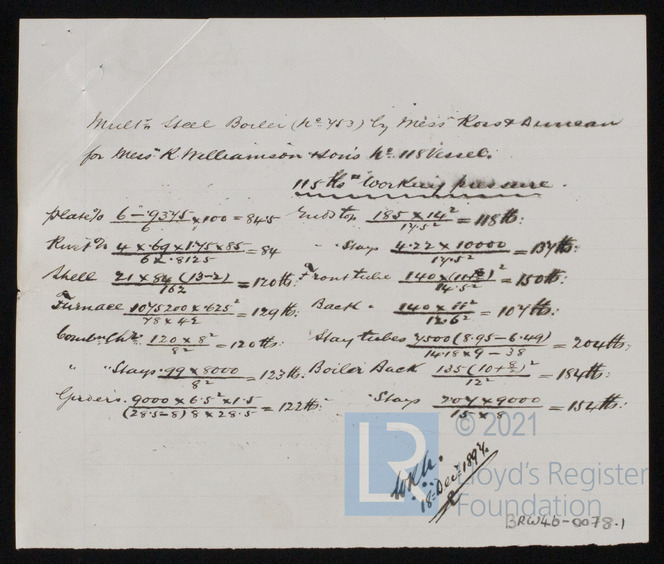 Mult'r Steel Boiler (No 453) by Mess Ross & Duncan
for Mess R. Williamson & Son's No 118 Vessel.
115 lbs Working pressure.
Plate % 6 - .9375 / 6 × 100 = 84.5 Ends top 185 × 14² / 17.5² = 118 lb:
Rivet % 4 × .69 × 1.75 × 85 / 6 × .8125 = 84 " Stays 4.22 × 10000 / 17.5² = 137 lb:
Shell 21 × 84 (13-2) / 162 = 120 lb: Front tube / 14.5² = 150 lb:
Furnace 1075200 × .625² / 78 × 42 = 129 lb: Back " 140 × 11² / 12.6² = 107 lb:
Comb. Ch'r 120 × 8² / 8² = 120 lb: Stay tubes 7500 (8.95 - 6.49) / 14.18 × 9 - 38 = 204 lb:
" " Stays .99 × 8000 / 8² = 123 lb. Boiler Back 135 (10 + )² / 12² = 184 lb:
Girders 9000 × 6.5² × 1.5 / (28.5-8) 8 × 28.5 = 122 lb: " Stays 2.07 × 9000 / 15 × 8 = 154 lb:
18 Dec 1894
© 2021
LR
Lloyd's Register
Foundation
BRW46-0078.1